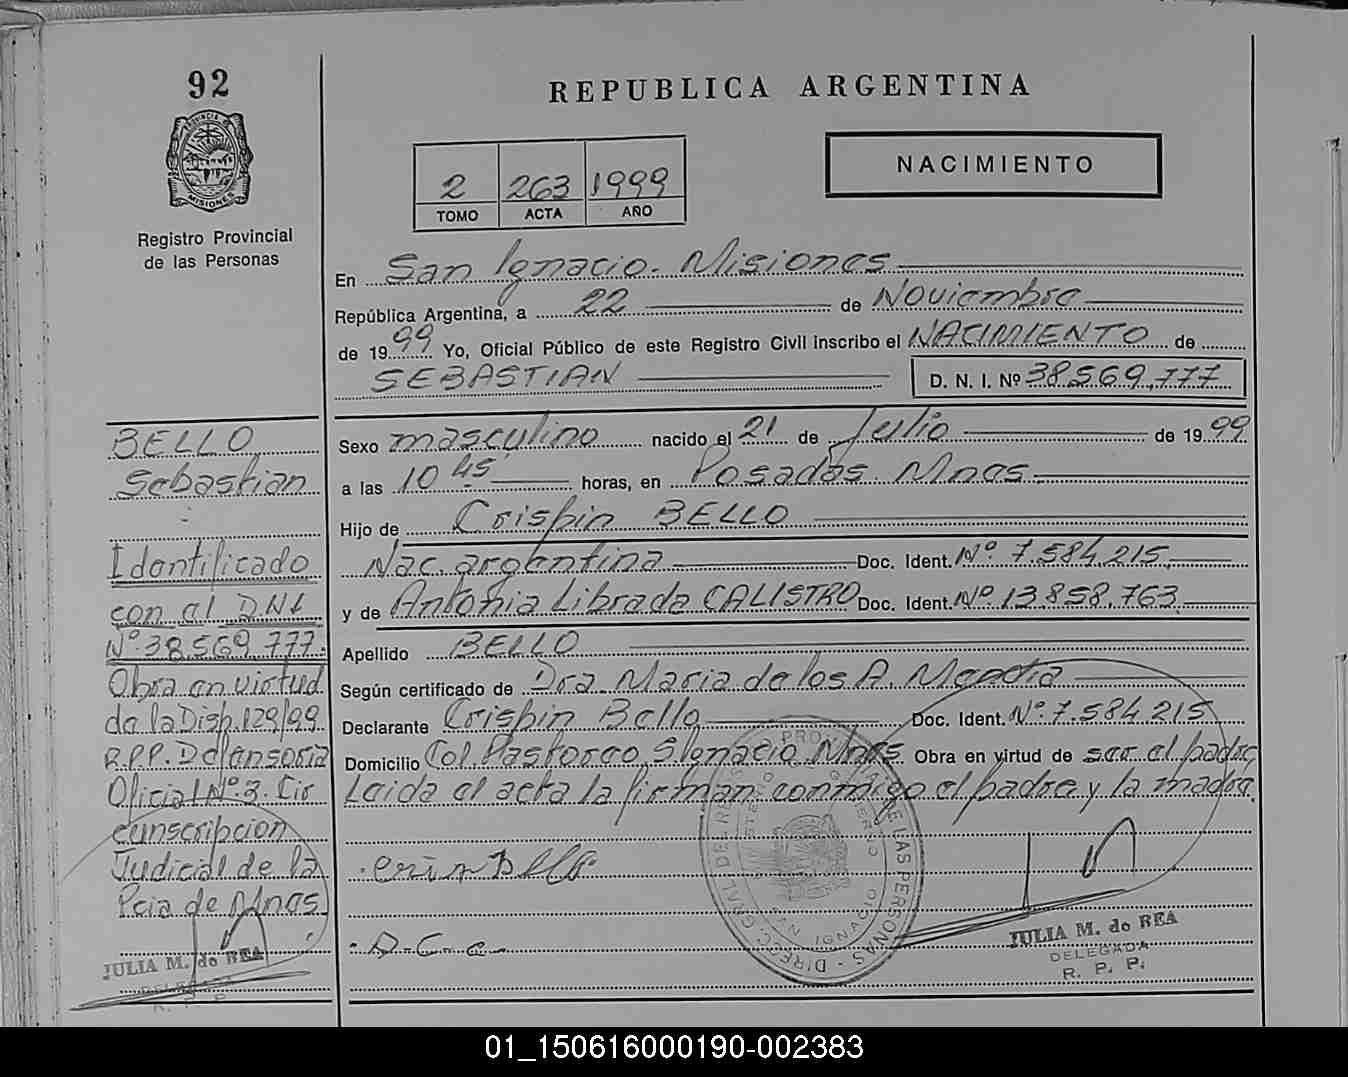 92
PROVINCIA DE
MISIONES
Registro Provincial
de las Personas
REPUBLICA ARGENTINA
2 263 1999
TOMO ACTA AÑO
NACIMIENTO
En San Ignacio. Misiones
República Argentina, a 22 de Noviembre
de 1999 Yo, Oficial Público de este Registro Civil inscribo el NACIMIENTO de
SEBASTIAN D. N. I. Nº 38.569.777
BELLO
Sebastian
Identificado
con el D.N.I.
Nº 38.569.777.
Obra en virtud
de la Disp. 129/99
R.P.P. Defensoria
Oficial Nº 3. Cir
cunscripcion
Judicial de la
Pcia de Mnes
JULIA M. de REA
DELEGADA
R. P. P.
Sexo masculino nacido el 21 de Julio de 1999
a las 10 45 horas, en Posadas. Mnes.
Hijo de Crispin BELLO
Nac. argentina Doc. Ident. Nº 7.584.215.
y de Antonia Librada CALISTRO Doc. Ident. Nº 13.858.763.
Apellido BELLO
Según certificado de Dra. Maria de los A.
Declarante Crispin Bello Doc. Ident. Nº 7.584.215
Domicilio Col. Pastoreo, S. Ignacio, Mnes. Obra en virtud de ser el padre,
Leida el acta la firman conmigo el padre y la madre.
DIREC. GRAL. DE REG. PROV. DE LAS PERSONAS
SAN IGNACIO
A. C. C.
JULIA M. de REA
DELEGADA
R. P. P.
01_150616000190-002383